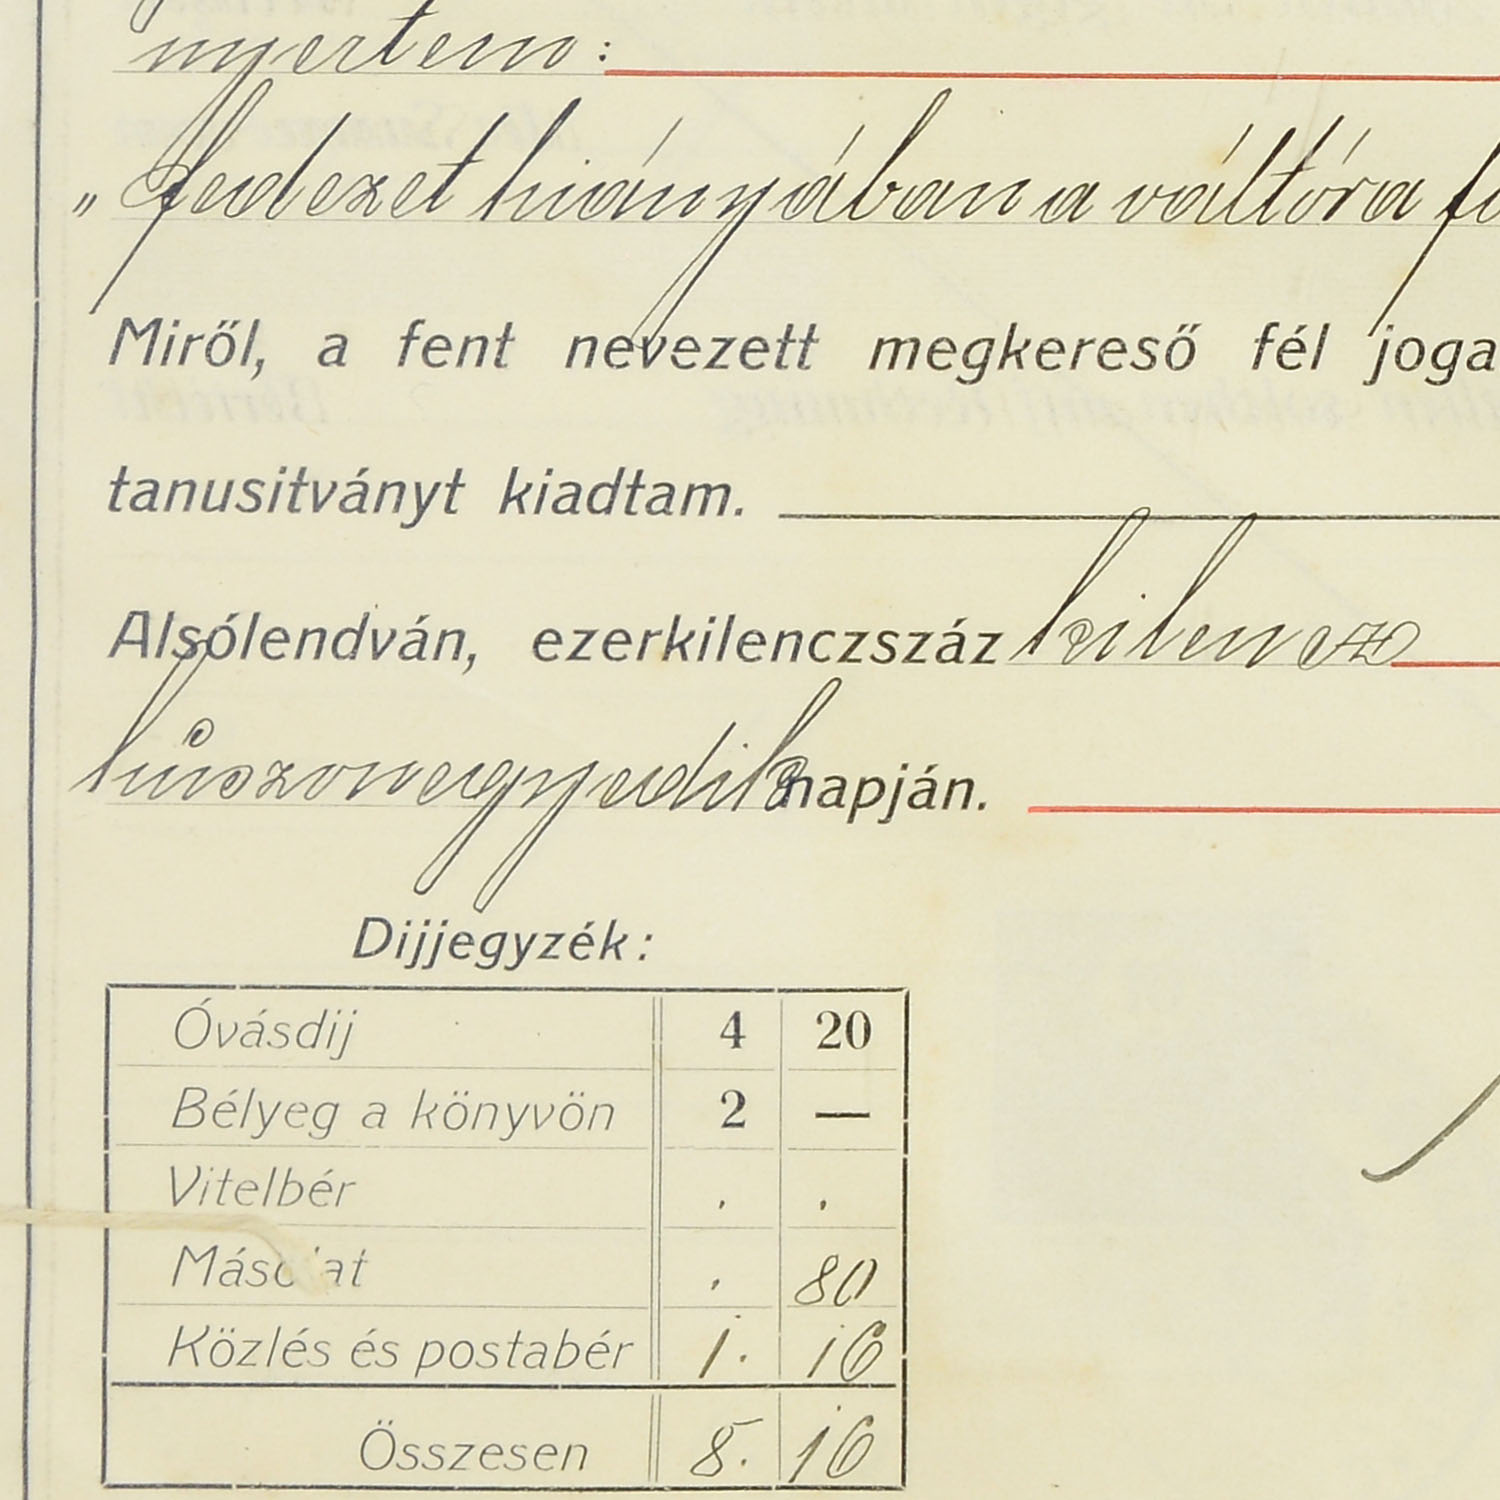 nyertem:
„fedezet hiányában a váltóra
Miről, a fent nevezett megkereső fél joga
tanusitványt kiadtam.
Alsólendván, ezerkilenczszáz kilencz
húszonegyedik napján.
Dijjegyzék:
Óvásdij 4 20
Bélyeg a könyvön 2 —
Vitelbér . .
Másolat . 80
Közlés és postabér 1. 16
Összesen 8. 16